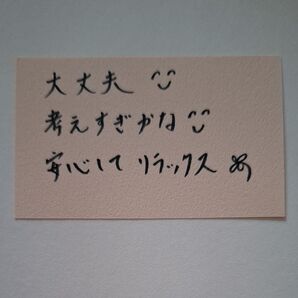 大丈夫 ^^
考えすぎかな ^^
安心して リラックス